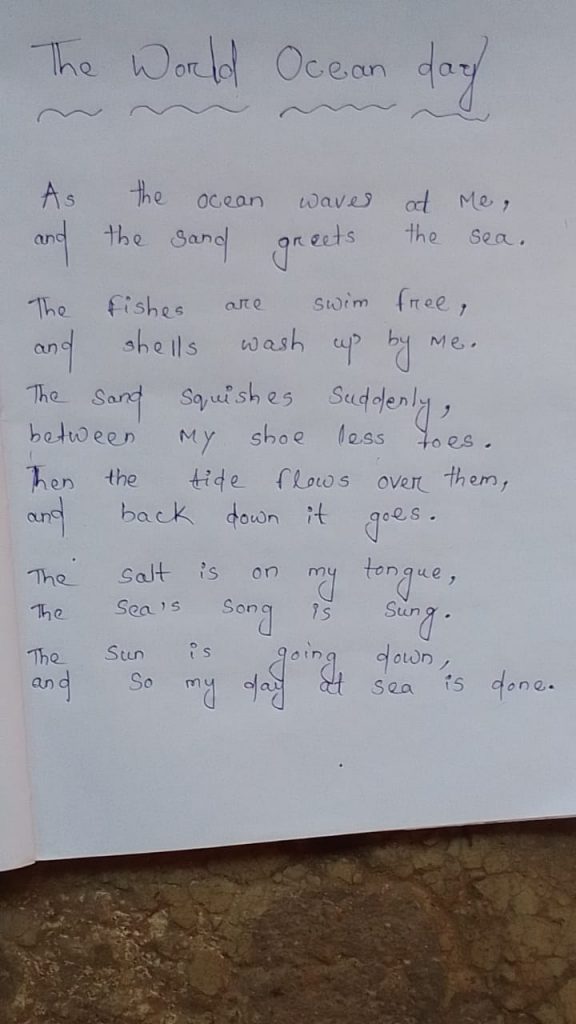 The World Ocean day
As the ocean waves at Me,
and the sand greets the sea.
The fishes are swim free,
and shells wash up by Me.
The sand squishes suddenly,
between My shoe less toes.
Then the tide flows over them,
and back down it goes.
The salt is on my tongue,
The sea's song is sung.
The sun is going down,
and so my day at sea is done.